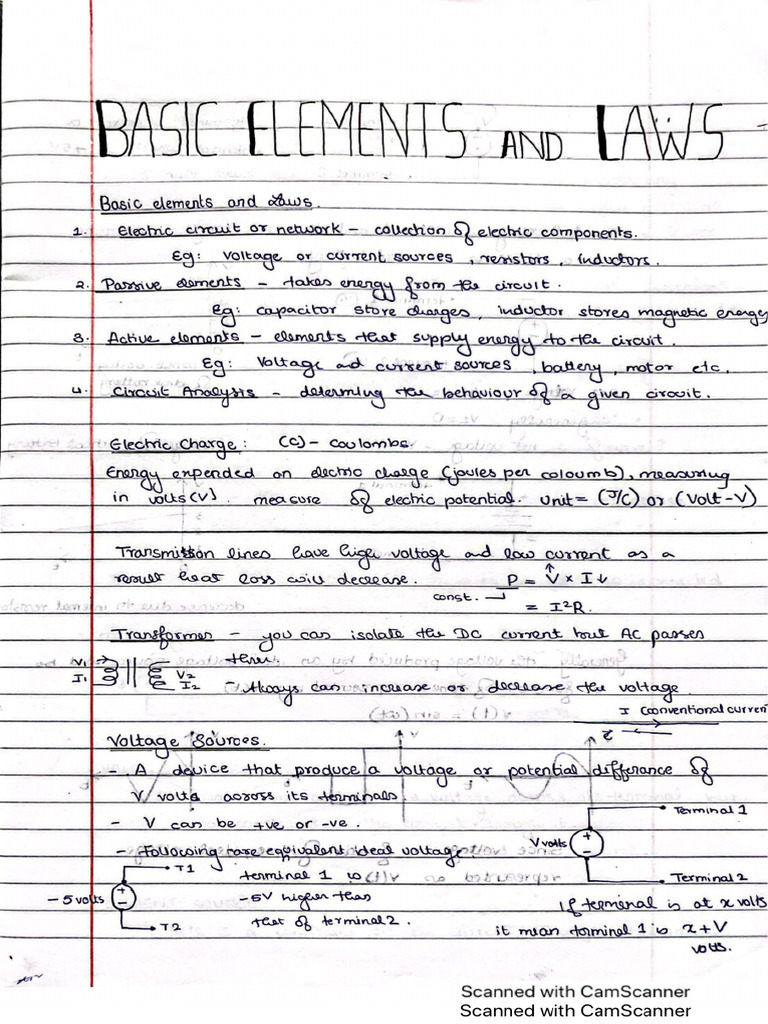 BASIC ELEMENTS AND LAWS
Basic elements and Laws.
1. Electric circuit or network - collection of electric components.
Eg: Voltage or current sources, resistors, inductors.
2. Passive elements - takes energy from the circuit.
Eg: capacitor store charges, inductor stores magnetic energy
3. Active elements - elements that supply energy to the circuit.
Eg: Voltage and current sources, battery, motor etc.
4. Circuit Analysis - determing the behaviour of a given circuit.
Electric Charge: (C) - coulombs.
Energy expended on electric charge (joules per coloumb), measuring
in volts (V). measure of electric potential. Unit = (J/C) or (Volt - V)
Transmission lines have high voltage and low current as a
result heat loss will decrease. P = V↑ x I↓
const.
= I²R.
Transformer - you can isolate the DC current but AC passes
thru.
V1
I1
V2
I2
- Always can increase or decrease the voltage.
I Conventional current
e-
Voltage Sources.
- A device that produce a voltage or potential difference of
V volts across its terminals
- V can be +ve or -ve.
- Following are equivalent ideal voltage
Terminal 1
V volts
+
-
Terminal 2
T1
- 5 volts
+
-
T2
terminal 1 is
-5V higher than
that of terminal 2.
If terminal is at x volts
it mean terminal 1 is x + V
volts.
Scanned with CamScanner
Scanned with CamScanner